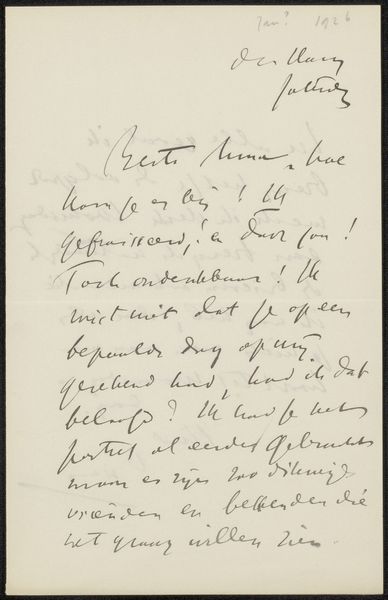 Jan? 1926
Den Haag
Beste hoe
kom je er bij! Ik
gefroisseerd! en door jou!
Toch ondenkbaar! Ik
wist niet dat je op een
bepaalde dag op mij
gerekend had, had ik dat
beloofd? Ik had je het
portret al eerder gebracht
maar er zijn zoo
vrienden en bekenden die
het graag willen zien.